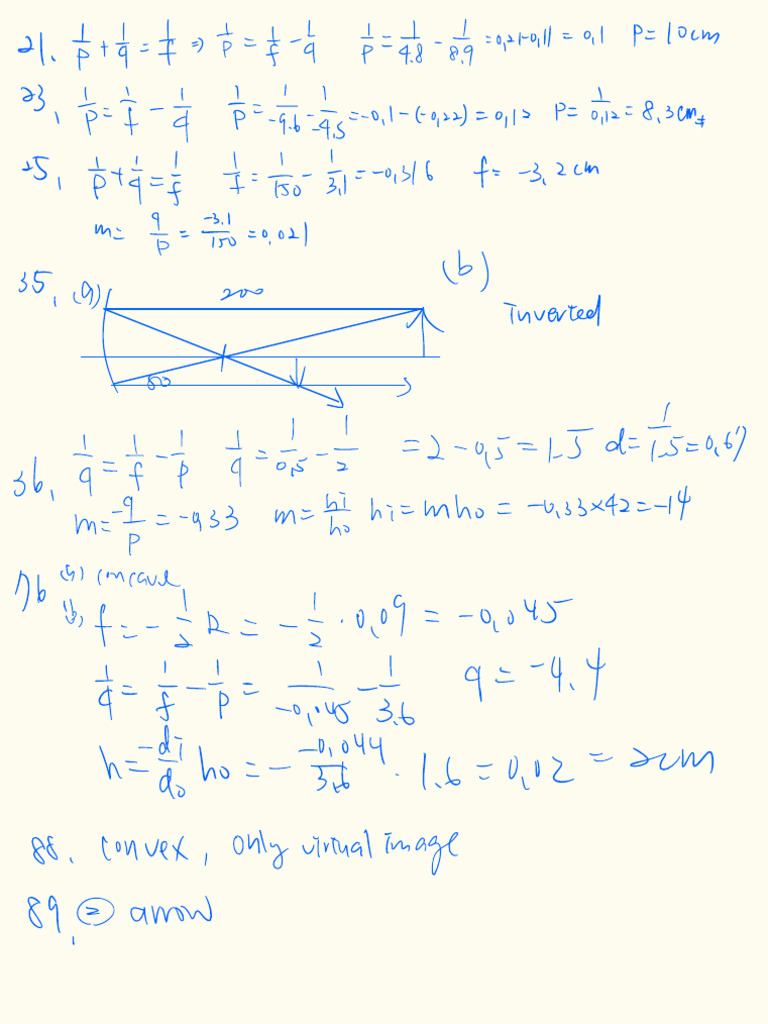 21. 1/p + 1/q = 1/f ⇒ 1/p = 1/f - 1/q 1/p = 1/4.8 - 1/8.9 = 0,21-0,11 = 0,1 P= 10cm
23, 1/p = 1/f - 1/q 1/p = 1/-9.6 - 1/-4.5 = -0,1-(-0,22) = 0,12 P= 1/0,12 = 8,3cm
25, 1/p + 1/q = 1/f 1/f = 1/150 - 1/3,1 = -0,316 f= -3,2cm
m= q/p = -3.1/150 = 0,021
35, (a) 200 (b)
Inverted
50
36, 1/q = 1/f - 1/p 1/q = 1/0,5 - 1/2 = 2-0,5 = 1.5 d= 1/1.5 = 0,67
m= -q/p = -0,33 m= hi/ho hi= mho = -0,33×42 = -14
76 (a) concave
(b) f = -1/2 R = -1/2 · 0,09 = -0,045
1/q = 1/f - 1/p = 1/-0,045 - 1/3.6 q = -4.4
h = -di/do ho = - -0,044/3,6 · 1.6 = 0,02 = 2cm
88. convex, only virtual image
89, ② arrow